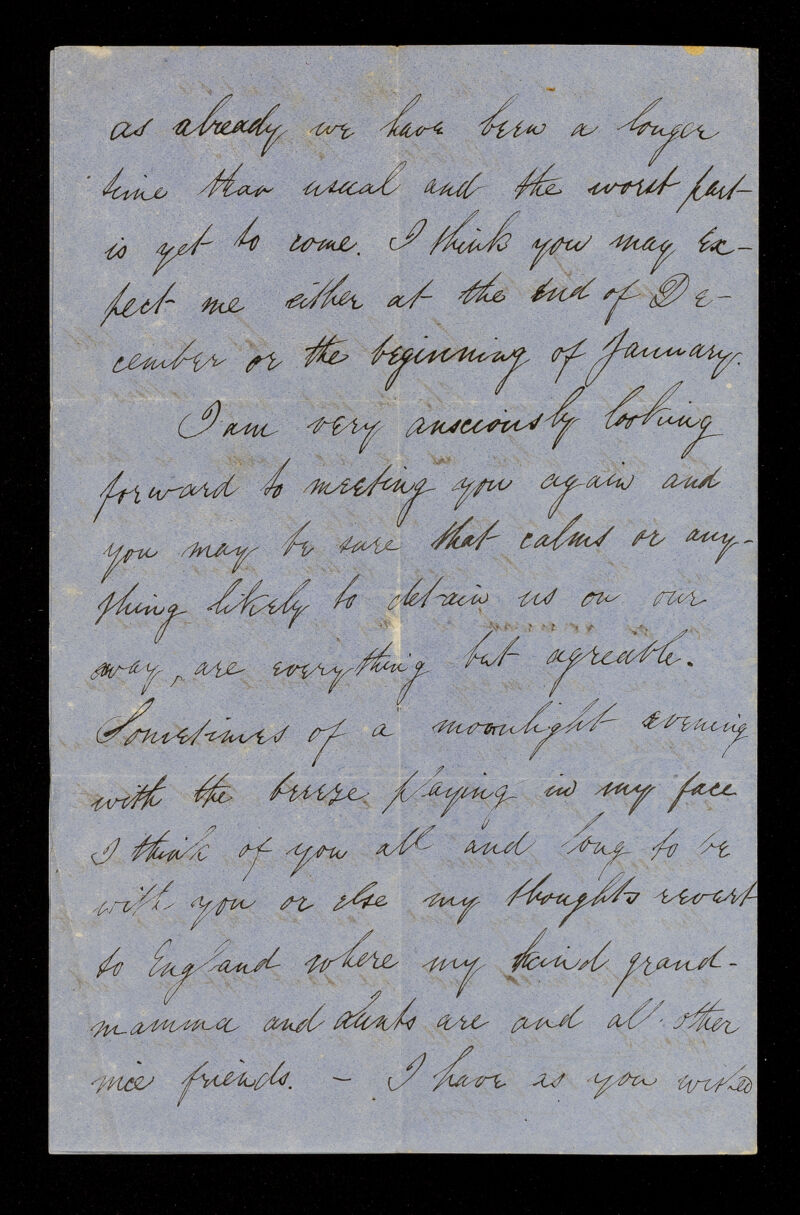 as already we have been a longer
time than usual and the worst part
is yet to come. I think you may ex-
pect me either at the end of De-
cember or the beginning of January.
I am very ansciously looking
forward to meeting you again and
you may be sure that calms or any-
thing likely to detain us on our
way, are everything but agreable.
Sometimes of a moonlight evening
with the breeze playing in my face
I think of you all and long to be
with you or else my thoughts revert
to England where my kind grand-
mamma and Aunts are and all other
nice friends. - I have as you wished